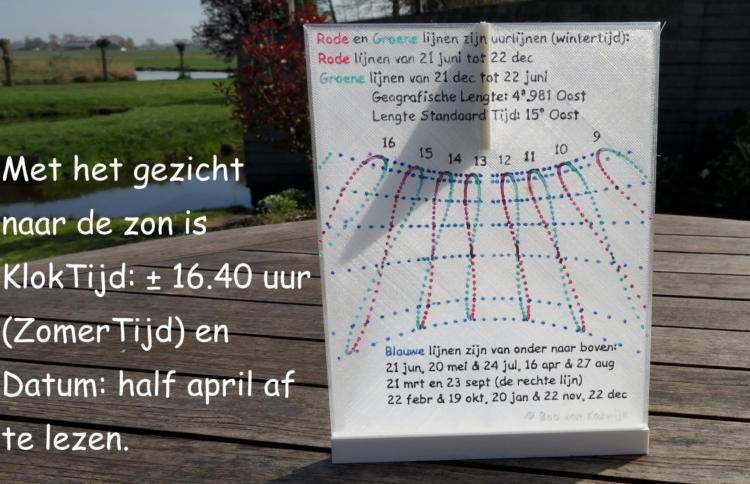 Rode en Groene lijnen zijn uurlijnen (wintertijd):
Rode lijnen van 21 juni tot 22 dec
Groene lijnen van 21 dec tot 22 juni
Geografische Lengte: 4°.981 Oost
Lengte Standaard Tijd: 15° Oost
16 15 14 13 12 11 10 9
Met het gezicht
naar de zon is
KlokTijd: ± 16.40 uur
(ZomerTijd) en
Datum: half april af
te lezen.
Blauwe lijnen zijn van onder naar boven:
21 jun, 20 mei & 24 jul, 16 apr & 27 aug
21 mrt en 23 sept (de rechte lijn)
22 febr & 19 okt, 20 jan & 22 nov, 22 dec